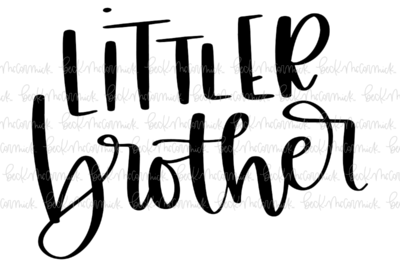 LiTTLER
brother